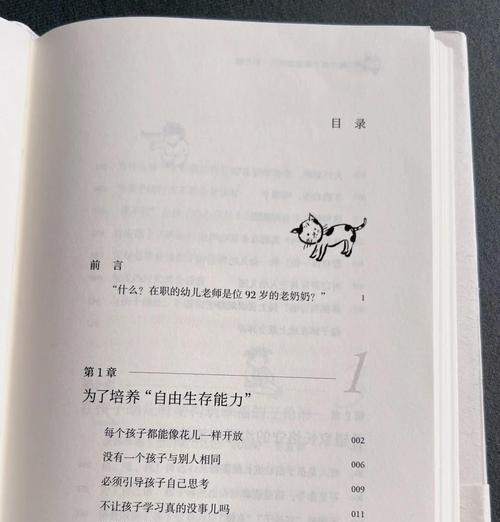 目 录
前 言
“什么？在职的幼儿老师是位 92 岁的老奶奶？” 1
第 1 章
1
为了培养“自由生存能力”
每个孩子都能像花儿一样开放 002
没有一个孩子与别人相同 006
必须引导孩子自己思考 008
不让孩子学习真的没事儿吗 011